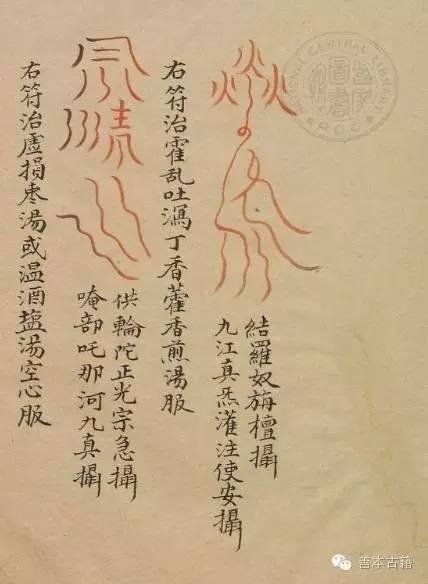 NATIONAL CENTRAL LIBRARY
R.O.C
結羅奴旃檀攝
九江真炁灌注使安攝
右符治霍乱吐瀉丁香藿香煎湯服
供輪陀正光宗急攝
唵部吒那河九真攝
右符治虛損枣湯或温酒盐湯空心服
善本古籍